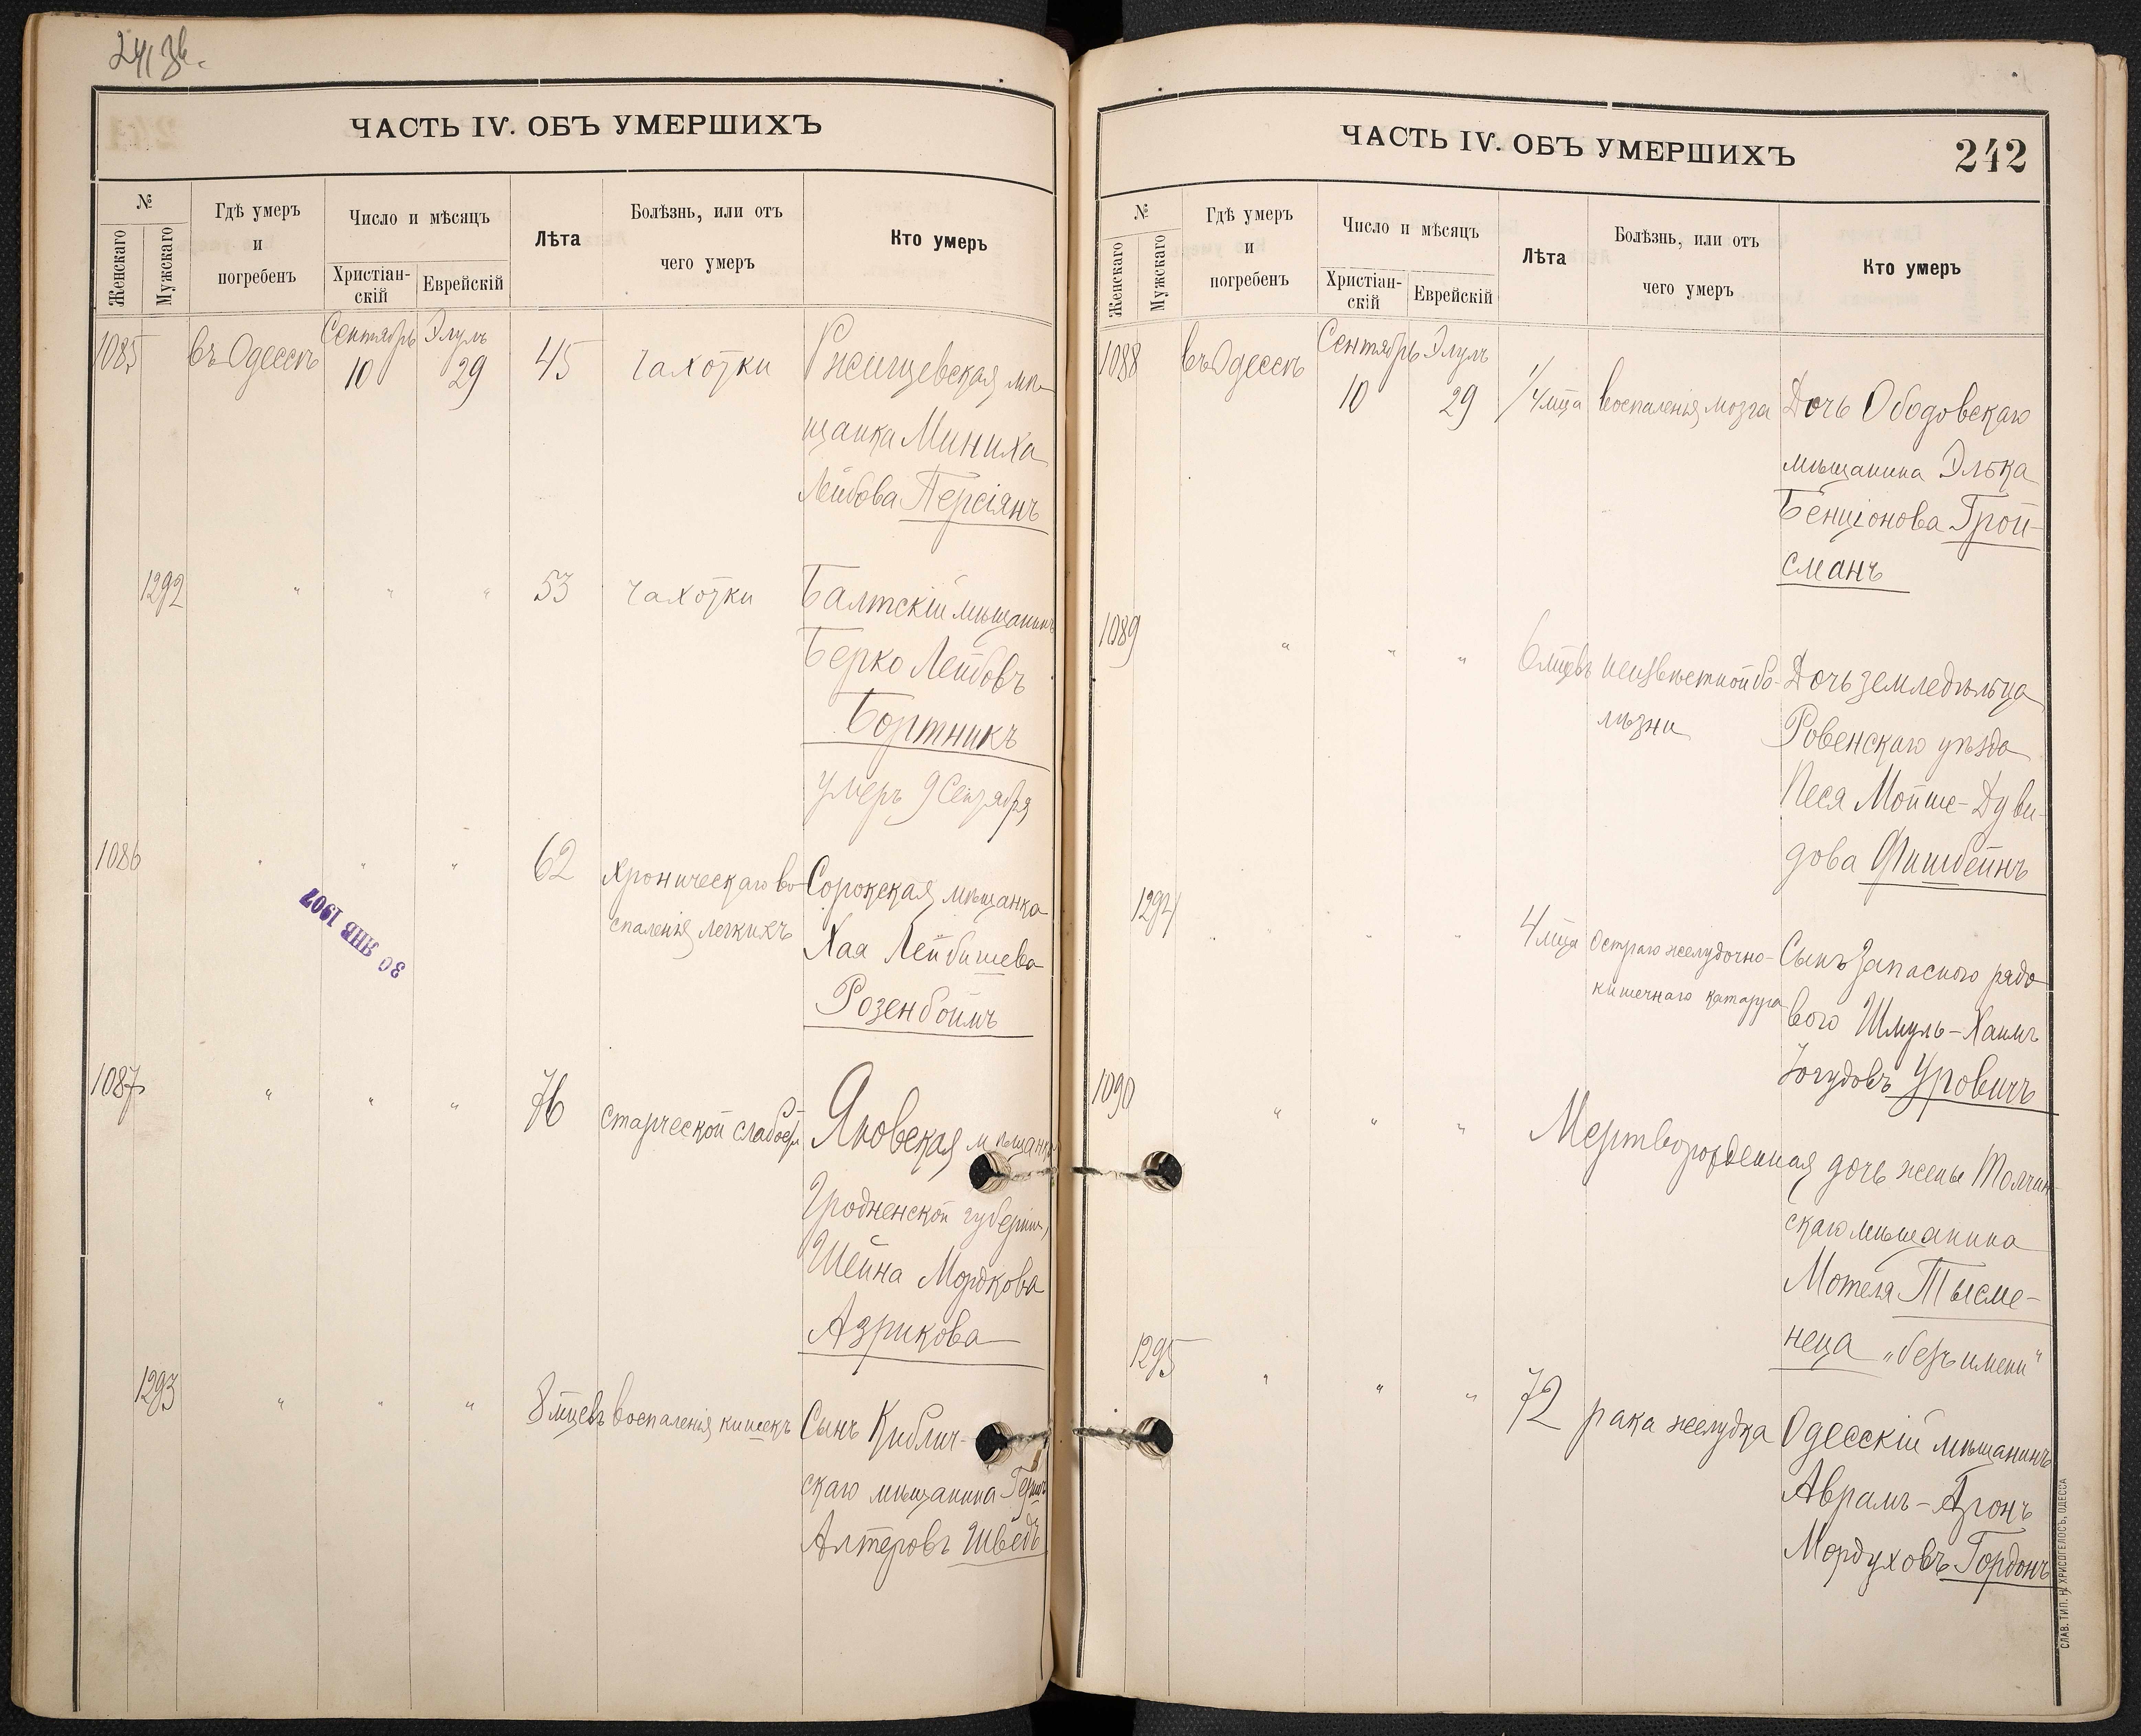 241 зв.
ЧАСТЬ IV. ОБЪ УМЕРШИХЪ
№
Женскаго
Мужскаго
Гдѣ умеръ
и
погребенъ
Число и мѣсяцъ
Христіан-
скій
Еврейскій
Лѣта
Болѣзнь, или отъ
чего умеръ
Кто умеръ
1085 въ Одессѣ Сентябрь 10 Элулъ 29 45 чахотки Ржищевская мѣ-
щанка Миниха
Лейбова Персіянъ
1292 " " " 53 чахотки Балтскій мѣщанинъ
Берко Лейбовъ
Бортникъ
умеръ 9 Сентября
1086 " " " 62 хроническаго во- Сорокская мѣщанка
спаленія легкихъ Хая Лейбишева
Розенбоймъ
30 ЯНВ 1907
1087 " " " 76 старческой слабости Яновская мѣщанка
Гродненской губерніи,
Шейна Мордкова
Азрикова
1293 " " " 8 мцевъ воспаленія кишекъ Сынъ Киблич-
скаго мѣщанина Гершъ
Алтеровъ Шведъ
ЧАСТЬ IV. ОБЪ УМЕРШИХЪ
242
№
Женскаго
Мужскаго
Гдѣ умеръ
и
погребенъ
Число и мѣсяцъ
Христіан-
скій
Еврейскій
Лѣта
Болѣзнь, или отъ
чего умеръ
Кто умеръ
1088 въ Одессѣ Сентябрь 10 Элулъ 29 1/4 мца воспаленія мозга Дочь Ободовскаго
мѣщанина Элька
Бенціонова Грой-
сманъ
1089 " " " 6 мцевъ неизвѣстной бо- Дочь земледѣльца
лѣзни Ровенскаго уѣзда
Песя Мойше-Дуви-
дова Фишбейнъ
1294 " " " 4 мца остраго желудочно- Сынъ запаснаго рядо
кишечнаго катарра вого Шмуль-Хаимъ
Іогудовъ Уровичъ
1090 " " " Мертворожденная дочь жены Толчин-
скаго мѣщанина
Мотеля Тысме-
неца „безъ имени"
1295 " " " 72 рака желудка Одесскій мѣщанинъ
Аврамъ-Аронъ
Мордуховъ Гордонъ
СЛАВ. ТИП. Н. ХРИСОГЕЛОСЪ, ОДЕССА